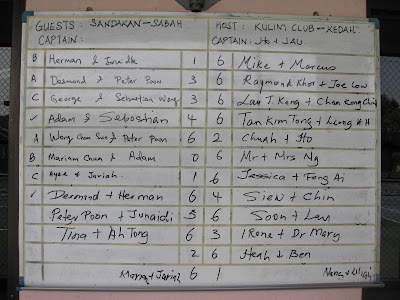 GUESTS: SANDAKAN - SABAH HOST: KULIM CLUB - KEDAH
CAPTAIN: CAPTAIN: Ho + LAU
B Herman & Junaidi 1 6 Mike + Marcus
A Desmond & Peter Poon 3 6 Raymond Khor + Joe Low
C George & Sebastian Wong 3 6 Lau T. Kong + Chan Kong
✓ Adam & Sebastian 4 6 Tan Kim Tong + Leong H H
A Wong Chun Sun & Peter Poon 6 2 Chuah + Ho
B Mariam Chua & Adam 0 6 Mr + Mrs Ng
C & Jariah 1 6 Jessica + Feng Ai
✓ Desmond + Herman 6 4 Siew + Chin
Peter Poon + Junaidi 5 6 Soon + Lau
Tina + Ah Tong 6 3 Irene + Dr Mary
2 6 Heah + Ben
+ Jariah 6 1 Nancy +